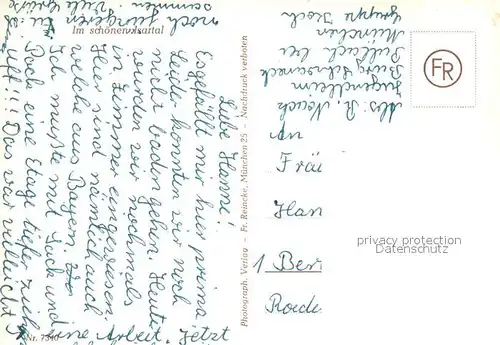 Im schönen Isartal
Liebe Hanni!
Es gefällt mir hier prima
Leider konnten wir noch
nicht baden gehen. Heute
wurden wir nochmals
in Zimmer eingewiesen.
Hier sind nämlich auch
welche aus Bayern
Ich mußte mit Sack und
Pack eine Etage tiefer zieh
uff!!! Das war vielleicht
eine Arbeit. Jetzt
noch jüngeren
summen Viele Grüße
Nr. 7340
Photograph. Verlag – Fr. Reincke, München 25 – Nachdruck verboten
Abs. R.
Jugendheim
Burg Schwaneck
Pullach bei
München
Gruppe Koch
FR
An
Fräu
Han
1 Ber
Rode
privacy protection
Datenschutz